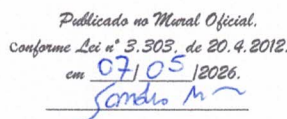 Publicado no Mural Oficial,
Conforme Lei n° 3.303, de 20.4.2012.
em 07/05/2026.